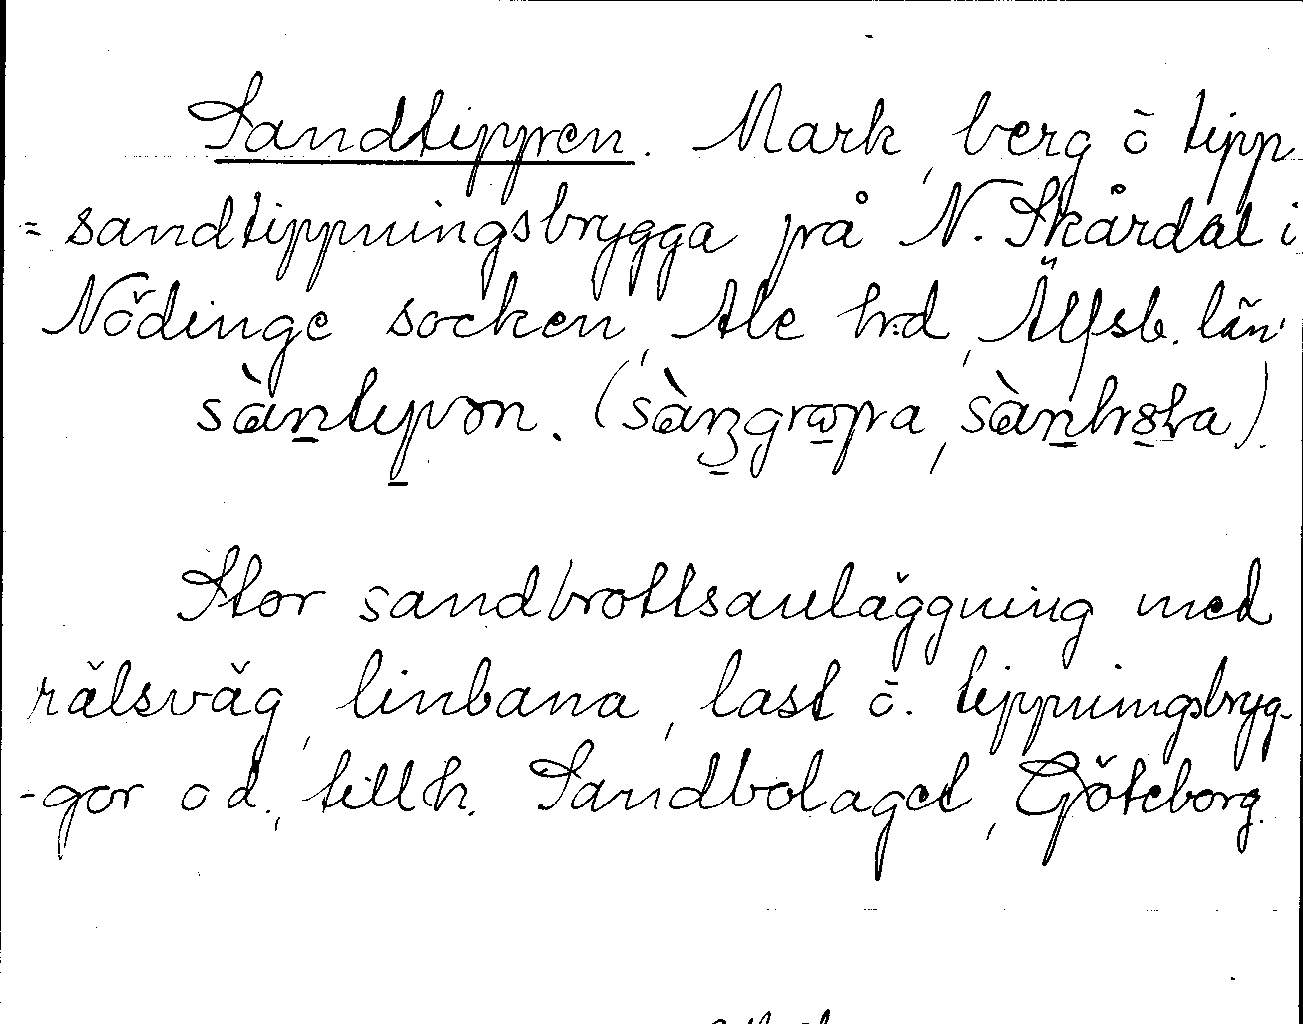 Sandtippen. Mark, berg ō tipp
= sandtippningsbrygga på N. Skårdal i
Nödinge socken, Ale h:d, Älfsb. län
sàntypən. (sàngropa, sànhola).
Stor sandbrottsanläggning med
rälsväg, linbana, last ō. tippningsbryg-
-gor o d., tillh. Sandbolaget, Göteborg.